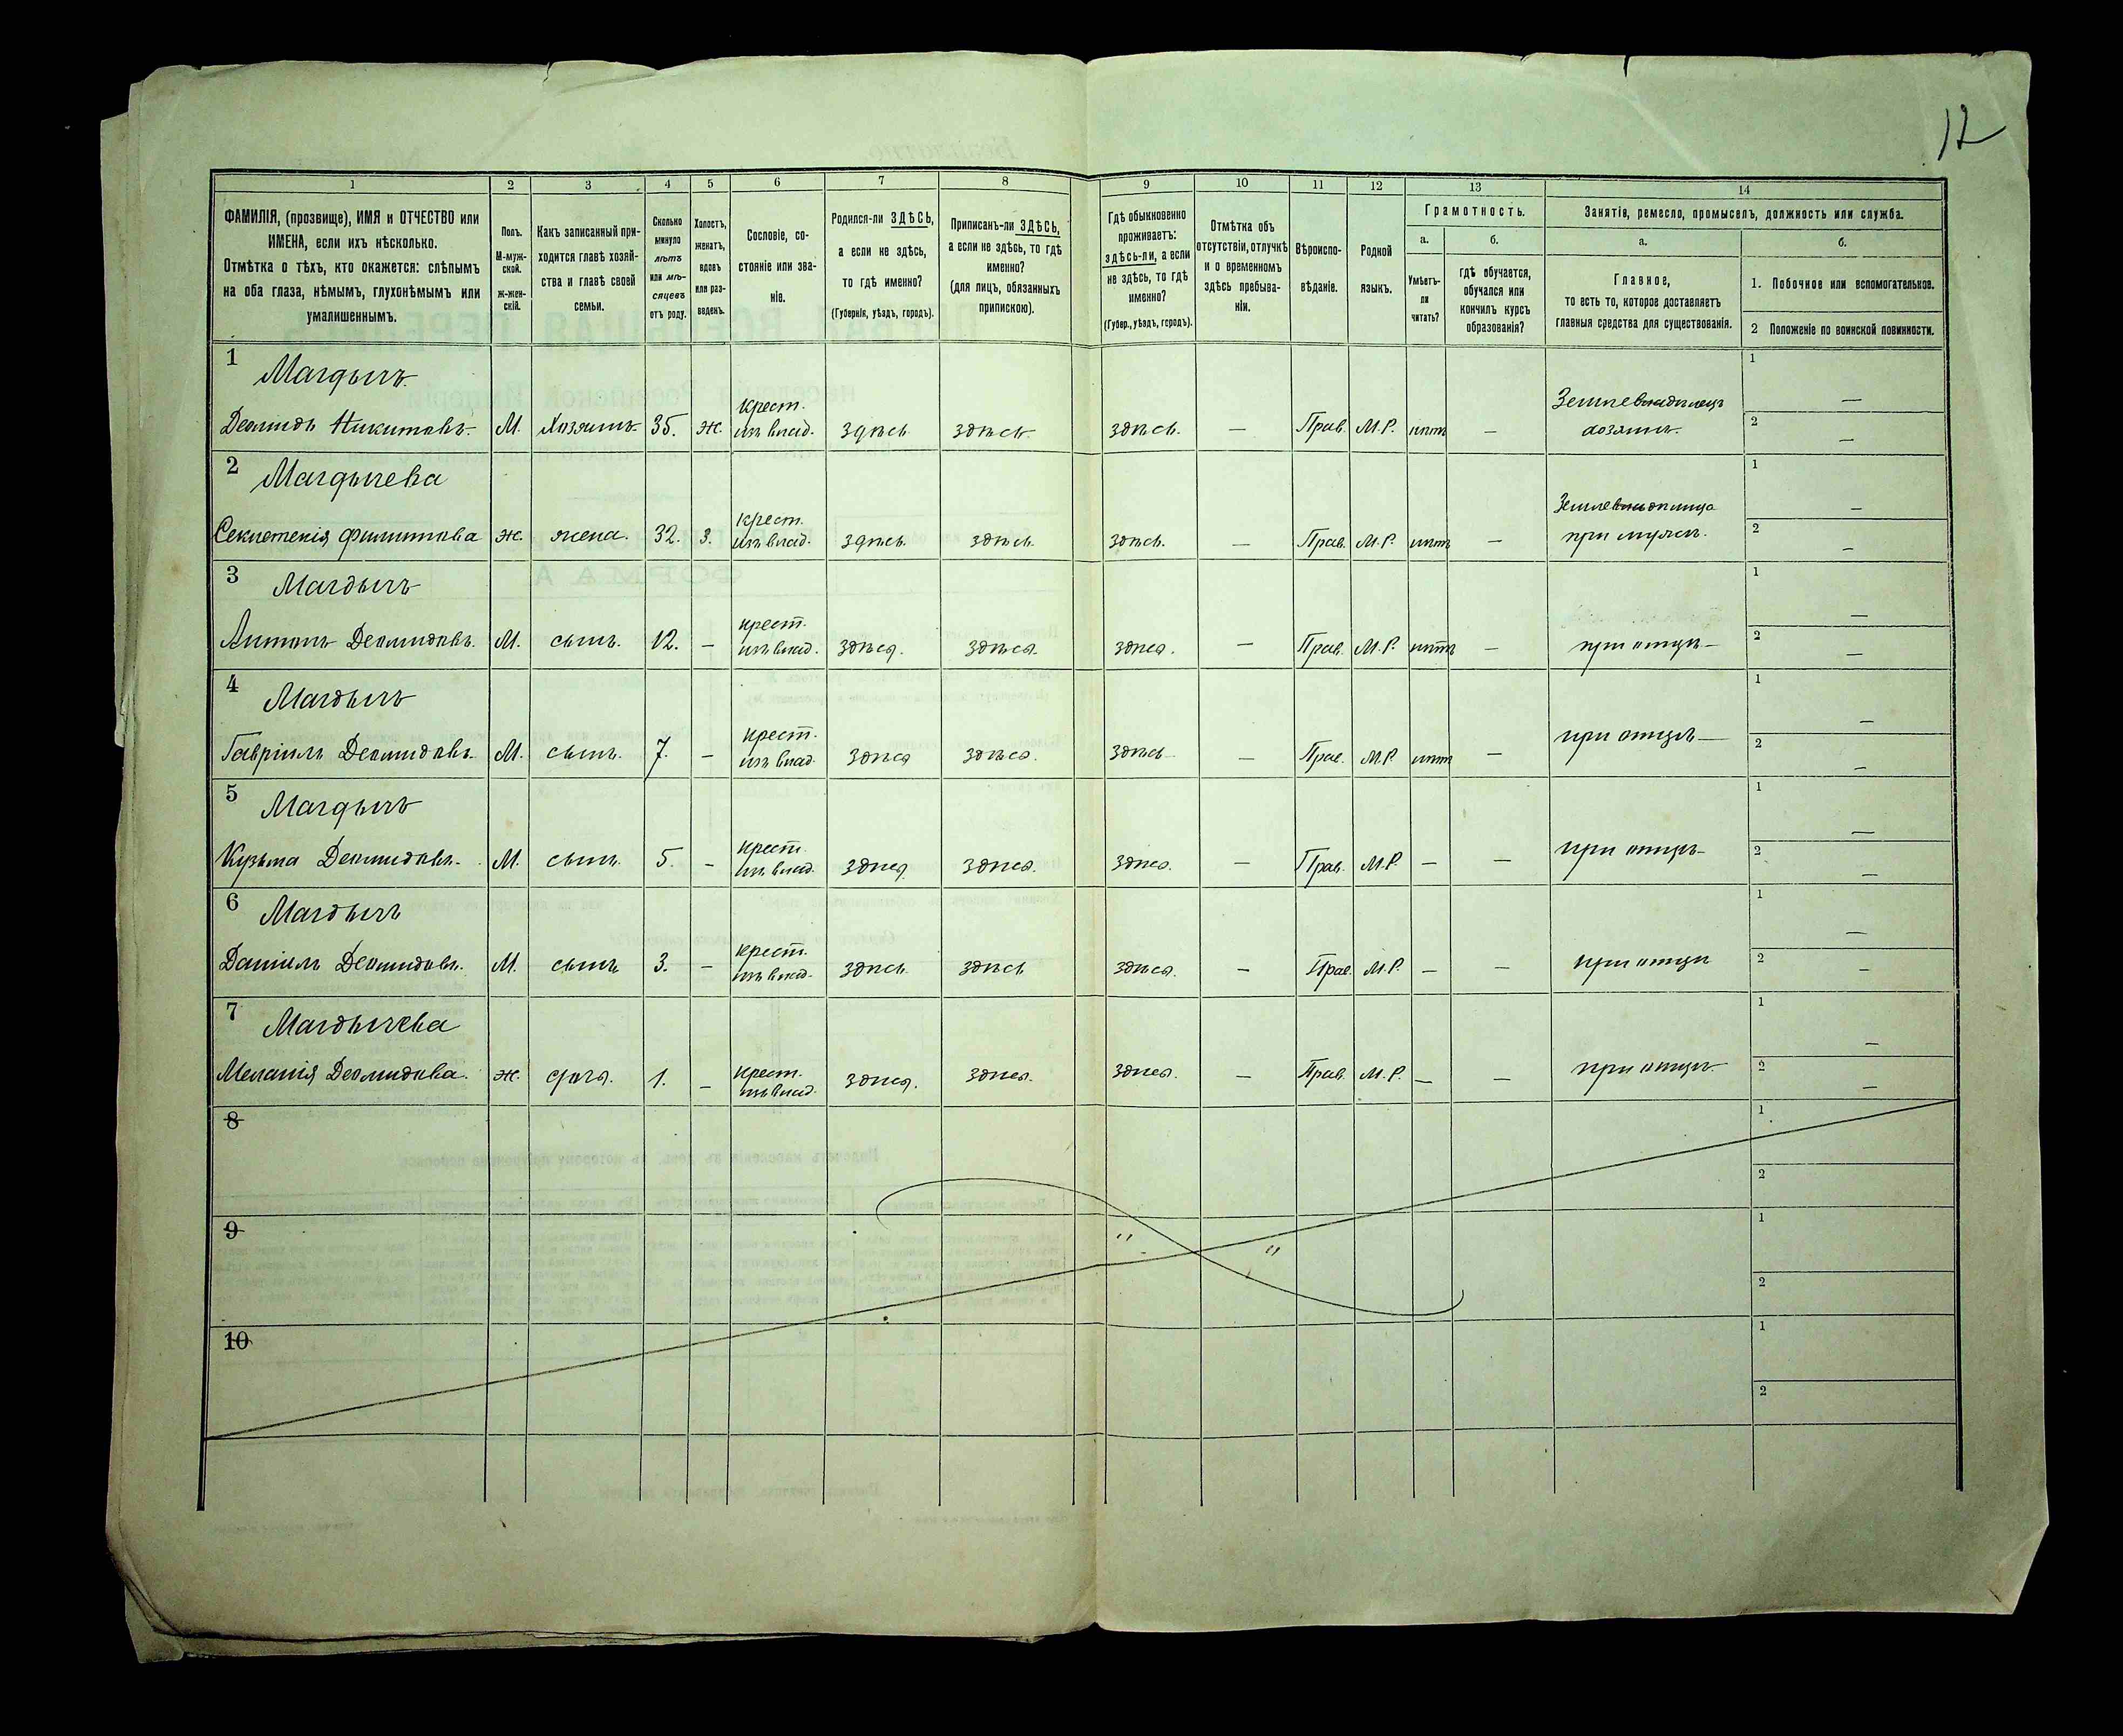 12
1 2 3 4 5 6 7 8 9 10 11 12 13 14
ФАМИЛІЯ, (прозвище), ИМЯ и ОТЧЕСТВО или
ИМЕНА, если ихъ нѣсколько.
Отмѣтка о тѣхъ, кто окажется: слѣпымъ
на оба глаза, нѣмымъ, глухонѣмымъ или
умалишеннымъ.
Полъ.
М-муж-
ской.
Ж-жен-
скій.
Какъ записанный при-
ходится главѣ хозяй-
ства и главѣ своей
семьи.
Сколько
минуло
лѣтъ
или мѣ-
сяцевъ
отъ роду.
Холостъ,
женатъ,
вдовъ
или раз-
веденъ.
Сословіе, со-
стояніе или зва-
ніе.
Родился-ли ЗДѢСЬ,
а если не здѣсь,
то гдѣ именно?
(Губернія, уѣздъ, городъ).
Приписанъ-ли ЗДѢСЬ,
а если не здѣсь, то гдѣ
именно?
(для лицъ, обязанныхъ
припискою).
Гдѣ обыкновенно
проживаетъ:
здѣсь-ли, а если
не здѣсь, то гдѣ
именно?
(Губер., уѣздъ, городъ).
Отмѣтка объ
отсутствіи, отлучкѣ
и о временномъ
здѣсь пребыва-
ніи.
Вѣроиспо-
вѣданіе.
Родной
языкъ.
Грамотность.
а.
Умѣетъ-
ли
читать?
б.
гдѣ обучается,
обучался или
кончилъ курсъ
образованія?
Занятія, ремесло, промыселъ, должность или служба.
а.
Главное,
то есть то, которое доставляетъ
главныя средства для существованія.
б.
1. Побочное или вспомогательное.
2 Положеніе по воинской повинности.
1 Магдычъ
Деомидъ Никитовъ. М. Хозяинъ 35. Ж. Крест. изъ влад. здѣсь здѣсь здѣсь. — Прав. М.Р. нѣтъ — Землевладѣлецъ хозяинъ. 1 — 2 —
2 Магдычева
Секлетенія Филиппова Ж. жена. 32. З. Крест. изъ влад. здѣсь. здѣсь. здѣсь. — Прав. М.Р. нѣтъ — Землевладѣлица при мужѣ. 1 — 2 —
3 Магдычъ
Антонъ Деомидовъ. М. сынъ. 12. — крест. изъ влад. здѣсь. здѣсь. здѣсь. — Прав. М.Р. нѣтъ — при отцѣ — 1 — 2 —
4 Магдычъ
Гавріилъ Деомидовъ. М. сынъ. 7. — крест. изъ влад. здѣсь здѣсь. здѣсь — Прав. М.Р. нѣтъ — при отцѣ — 1 — 2 —
5 Магдычъ
Кузьма Деомидовъ. М. сынъ. 5. — крест. изъ влад. здѣсь здѣсь. здѣсь. — Прав. М.Р. — — при отцѣ — 1 — 2 —
6 Магдычъ
Даніилъ Деомидовъ. М. сынъ 3. — крест. изъ влад. здѣсь здѣсь здѣсь. — Прав. М.Р. — — при отцѣ 1 — 2 —
7 Магдычева
Меланія Деомидова. Ж. дочь. 1. — крест. изъ влад. здѣсь. здѣсь. здѣсь. — Прав. М.Р. — — при отцѣ 1 — 2 —
8 1 2
9 " " 1 2
10 1 2